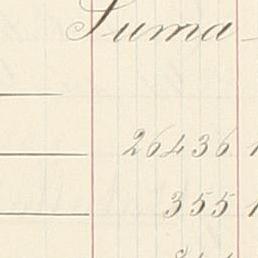 Suma
26436
355